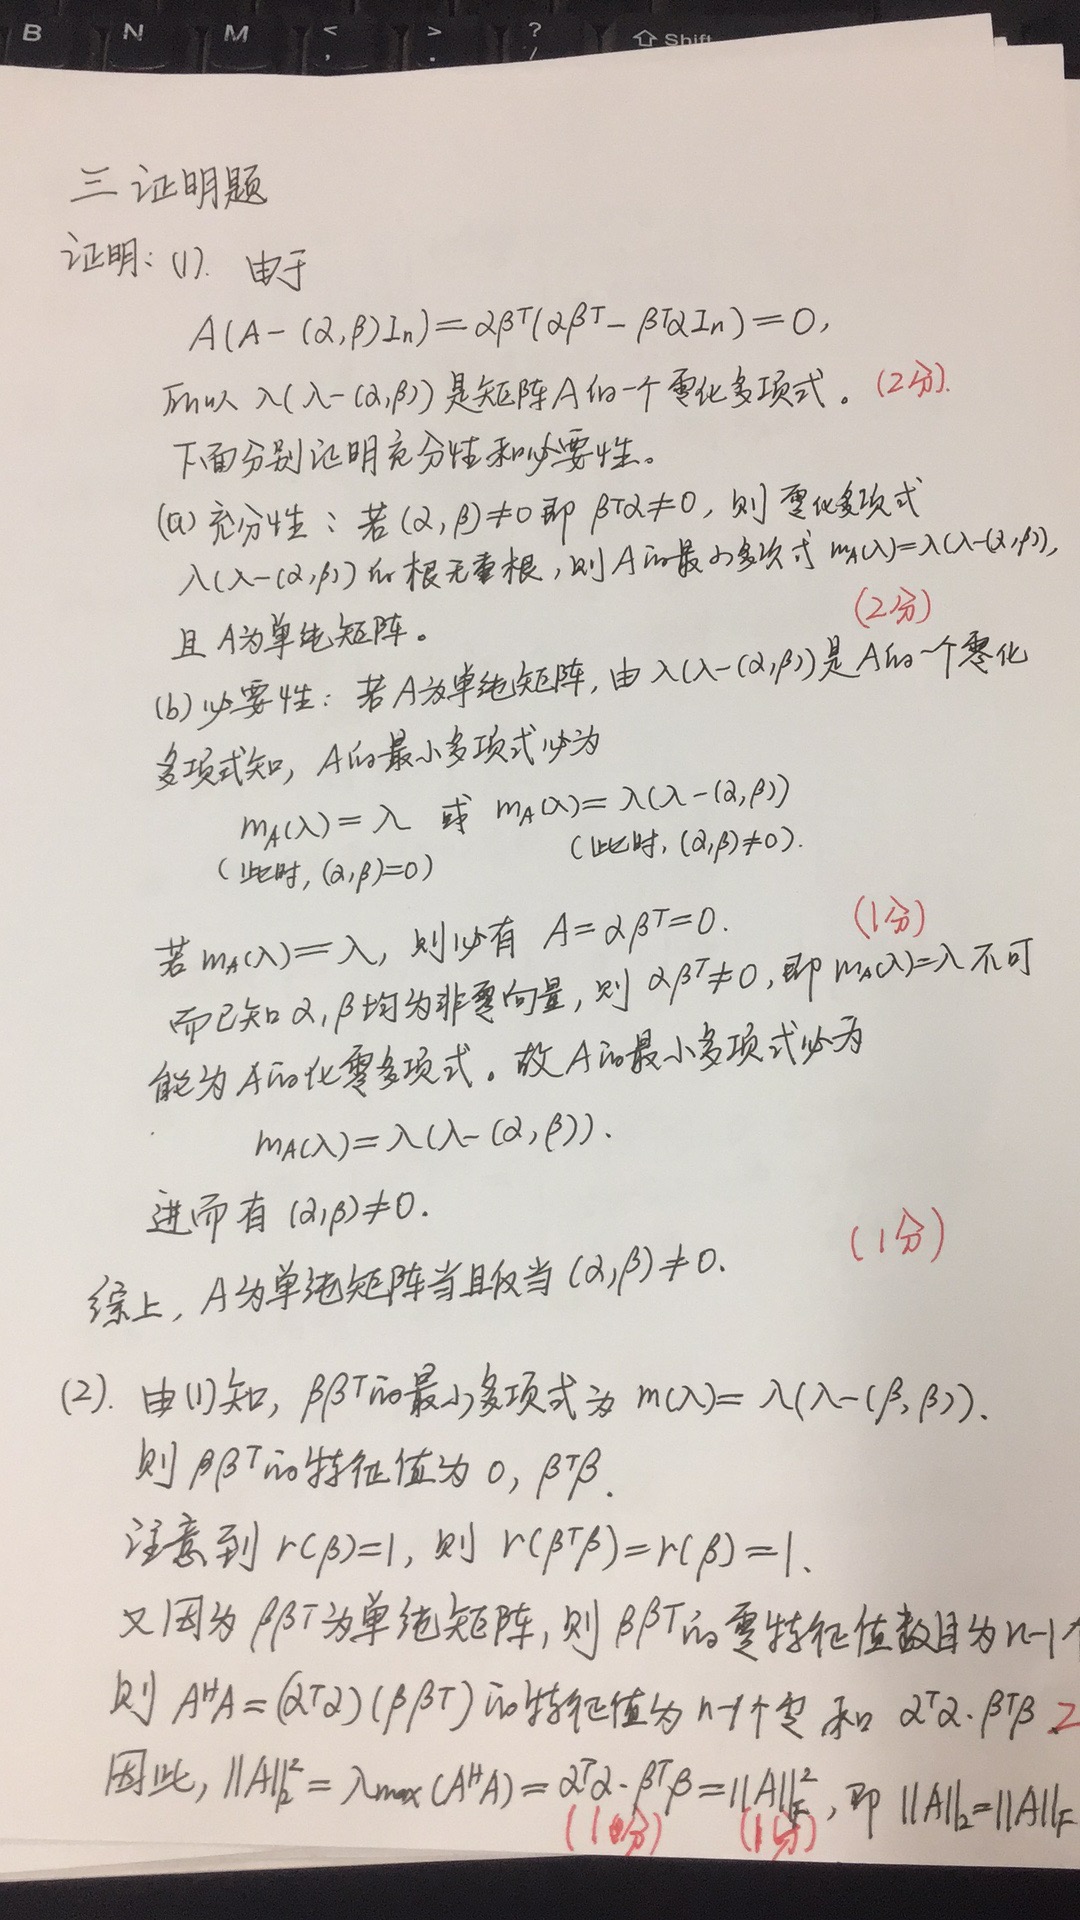 B N M < , > . ? / ⇧ Shift
三 证明题
证明: (1). 由于
A(A-(α,β)Iₙ)=αβᵀ(αβᵀ-βᵀαIₙ)=0,
所以 λ(λ-(α,β))是矩阵A的一个零化多项式。(2分).
下面分别证明充分性和必要性。
(a) 充分性: 若(α,β)≠0即 βᵀα≠0, 则 零化多项式
λ(λ-(α,β))的根无重根,则A的最小多次式 m_A(λ)=λ(λ-(α,β)),
且 A为单纯矩阵。 (2分)
(b) 必要性: 若A为单纯矩阵, 由 λ(λ-(α,β))是A的一个零化
多项式知, A的最小多项式必为
m_A(λ)=λ 或 m_A(λ)=λ(λ-(α,β))
(此时, (α,β)=0) (此时, (α,β)≠0).
若 m_A(λ)=λ, 则必有 A=αβᵀ=0. (1分)
而已知α,β均为非零向量, 则 αβᵀ≠0, 即 m_A(λ)=λ不可
能为A的化零多项式。故A的最小多项式必为
m_A(λ)=λ(λ-(α,β)).
进而有 (α,β)≠0. (1分)
综上, A为单纯矩阵当且仅当 (α,β)≠0.
(2). 由(1)知, ββᵀ的最小多项式为 m(λ)=λ(λ-(β,β)).
则 ββᵀ的特征值为 0, βᵀβ.
注意到 r(β)=1, 则 r(βᵀβ)=r(β)=1.
又因为 ββᵀ为单纯矩阵, 则ββᵀ的零特征值数目为n-1个
则 AᴴA=(αᵀα)(ββᵀ)的特征值为 n-1个零 和 αᵀα·βᵀβ
因此, ||A||₂²=λmax(AᴴA)=αᵀα·βᵀβ=||A||_F², 即 ||A||₂=||A||_F
(1分) (1分)